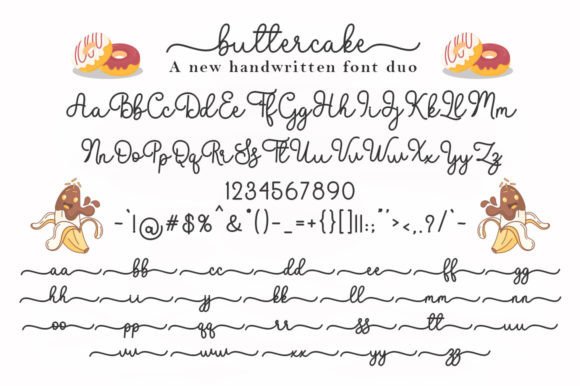 buttercake
A new handwritten font duo
Aa Bb Cc Dd Ee Ff Gg Hh Ii Jj Kk Ll Mm
Nn Oo Pp Qq Rr Ss Tt Uu Vv Ww Xx Yy Zz
1234567890
-`|@#$%^&*()-_=+{}[]||:;"'><,.?/`-
aa bb cc dd ee ff gg
hh ii jj kk ll mm nn
oo pp qq rr ss tt uu
vv ww xx yy zz